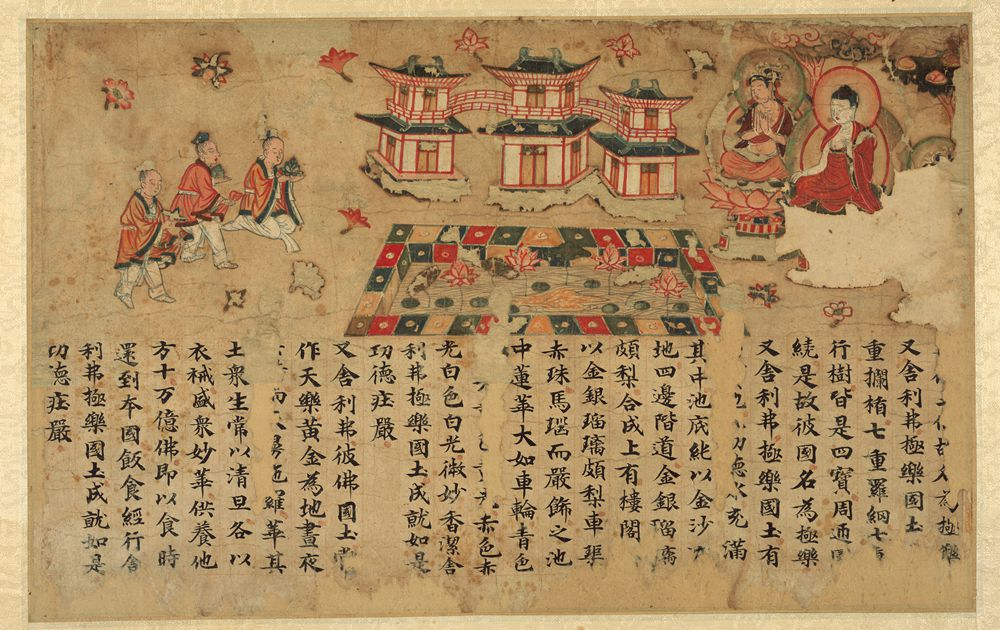 為極樂
又舍利弗極樂國土
重欄楯七重羅網七
行樹皆是四寶周迊
繞是故彼國名為極樂
又舍利弗極樂國土有
功德水充滿
其中池底純以金沙
地四邊階道金銀瑠璃
頗梨合成上有樓閣
以金銀瑠璃頗梨車渠
赤珠馬瑙而嚴飾之池
中蓮華大如車輪青色
赤色赤
光白色白光微妙香潔舍
利弗極樂國土成就如是
功德莊嚴
又舍利弗彼佛國土常
作天樂黃金為地晝夜
雨羅華其
土衆生常以清旦各以
衣裓盛衆妙華供養他
方十万億佛即以食時
還到本國飯食經行舍
利弗極樂國土成就如是
功德莊嚴